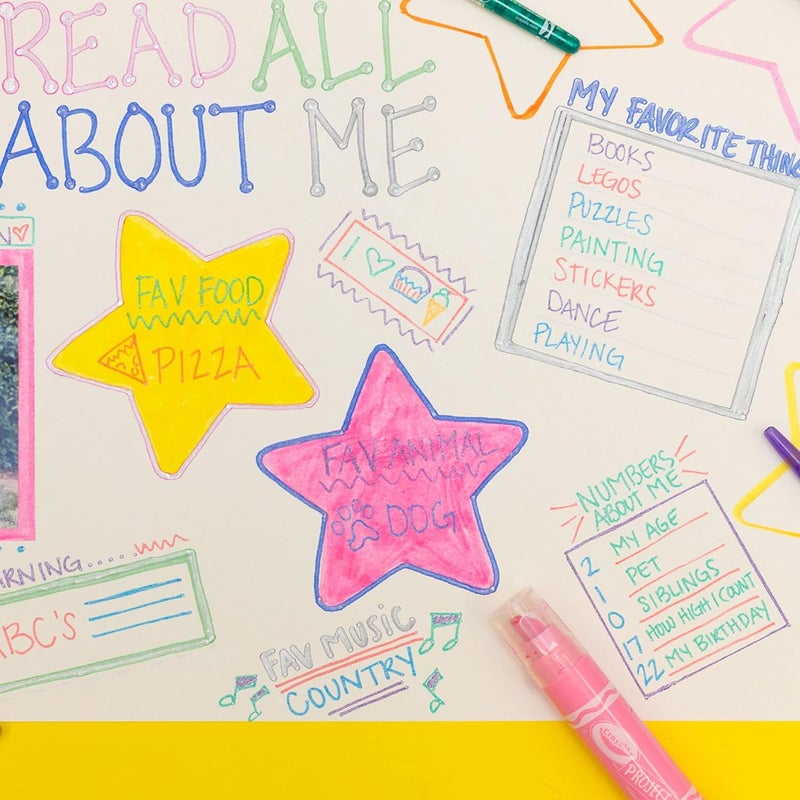 READ ALL
ABOUT ME
FAV FOOD
PIZZA
I
MY FAVORITE THING
BOOKS
LEGOS
PUZZLES
PAINTING
STICKERS
DANCE
PLAYING
FAV ANIMAL
DOG
NUMBERS
ABOUT ME
2 MY AGE
1 PET
0 SIBLINGS
17 HOW HIGH I COUNT
22 MY BIRTHDAY
ARNING.....
ABC'S
FAV MUSIC
COUNTRY
Crayola
PROJECT